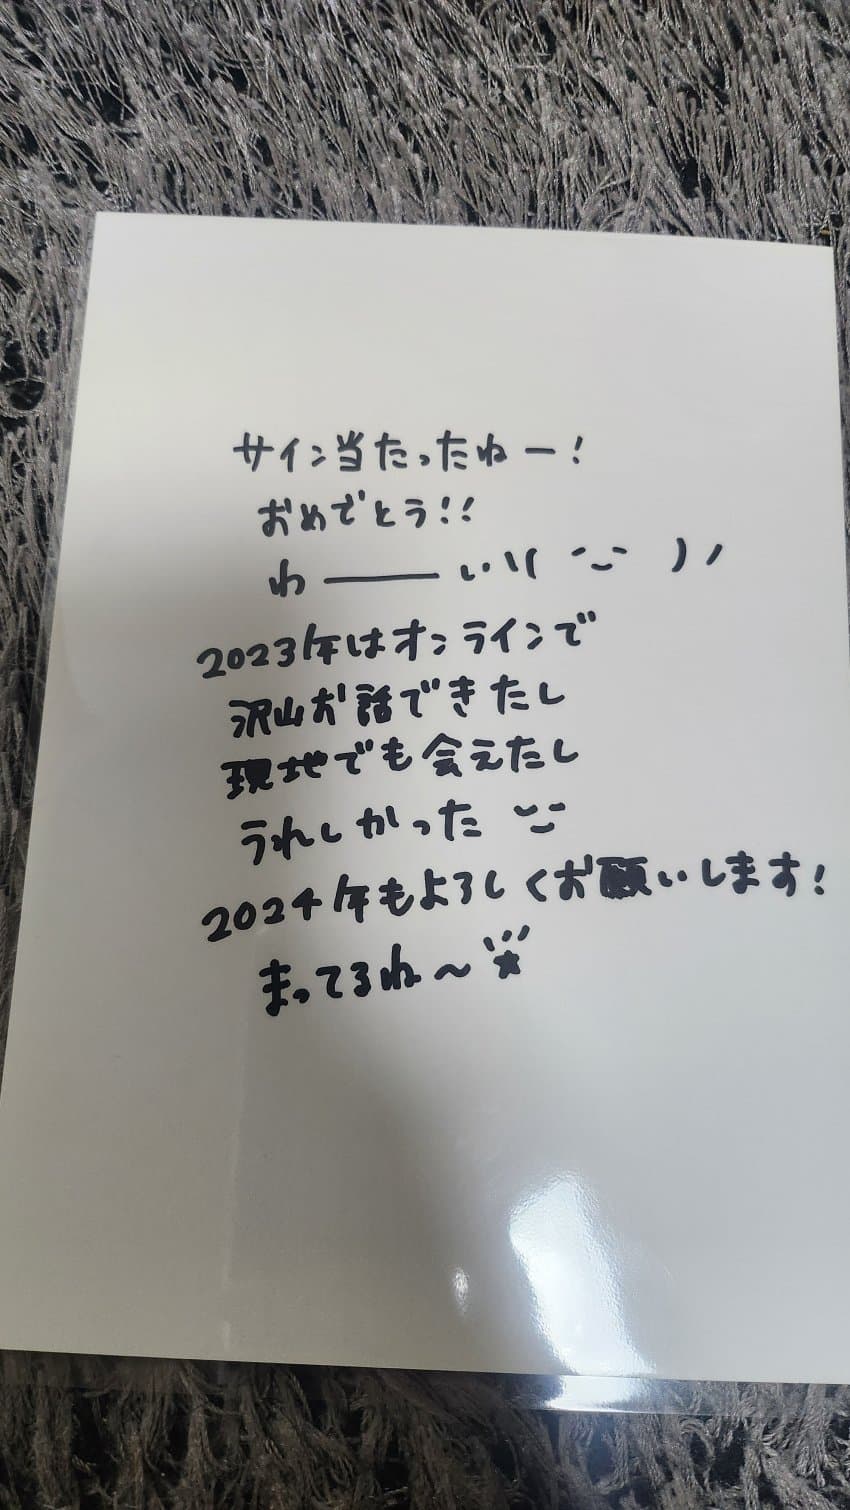 サイン当たったねー!
おめでとう!!
わーーーい\(  ˘⌣˘  )/
2023年はオンラインで
沢山お話できたし
現地でも会えたし
うれしかった ˘⌣˘
2024年もよろしくお願いします!
まってるね〜★